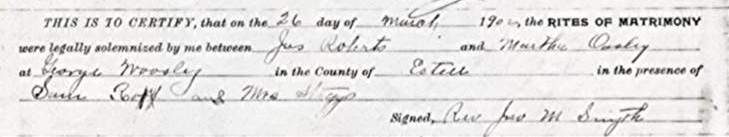 THIS IS TO CERTIFY, that on the 26 day of March 190 , the RITES OF MATRIMONY
were legally solemnized by me between Jas Roberts and Martha Owsley
at George Woosley in the County of Estill in the presence of
Sam and Mrs
Signed, Rev Jno M Smyth